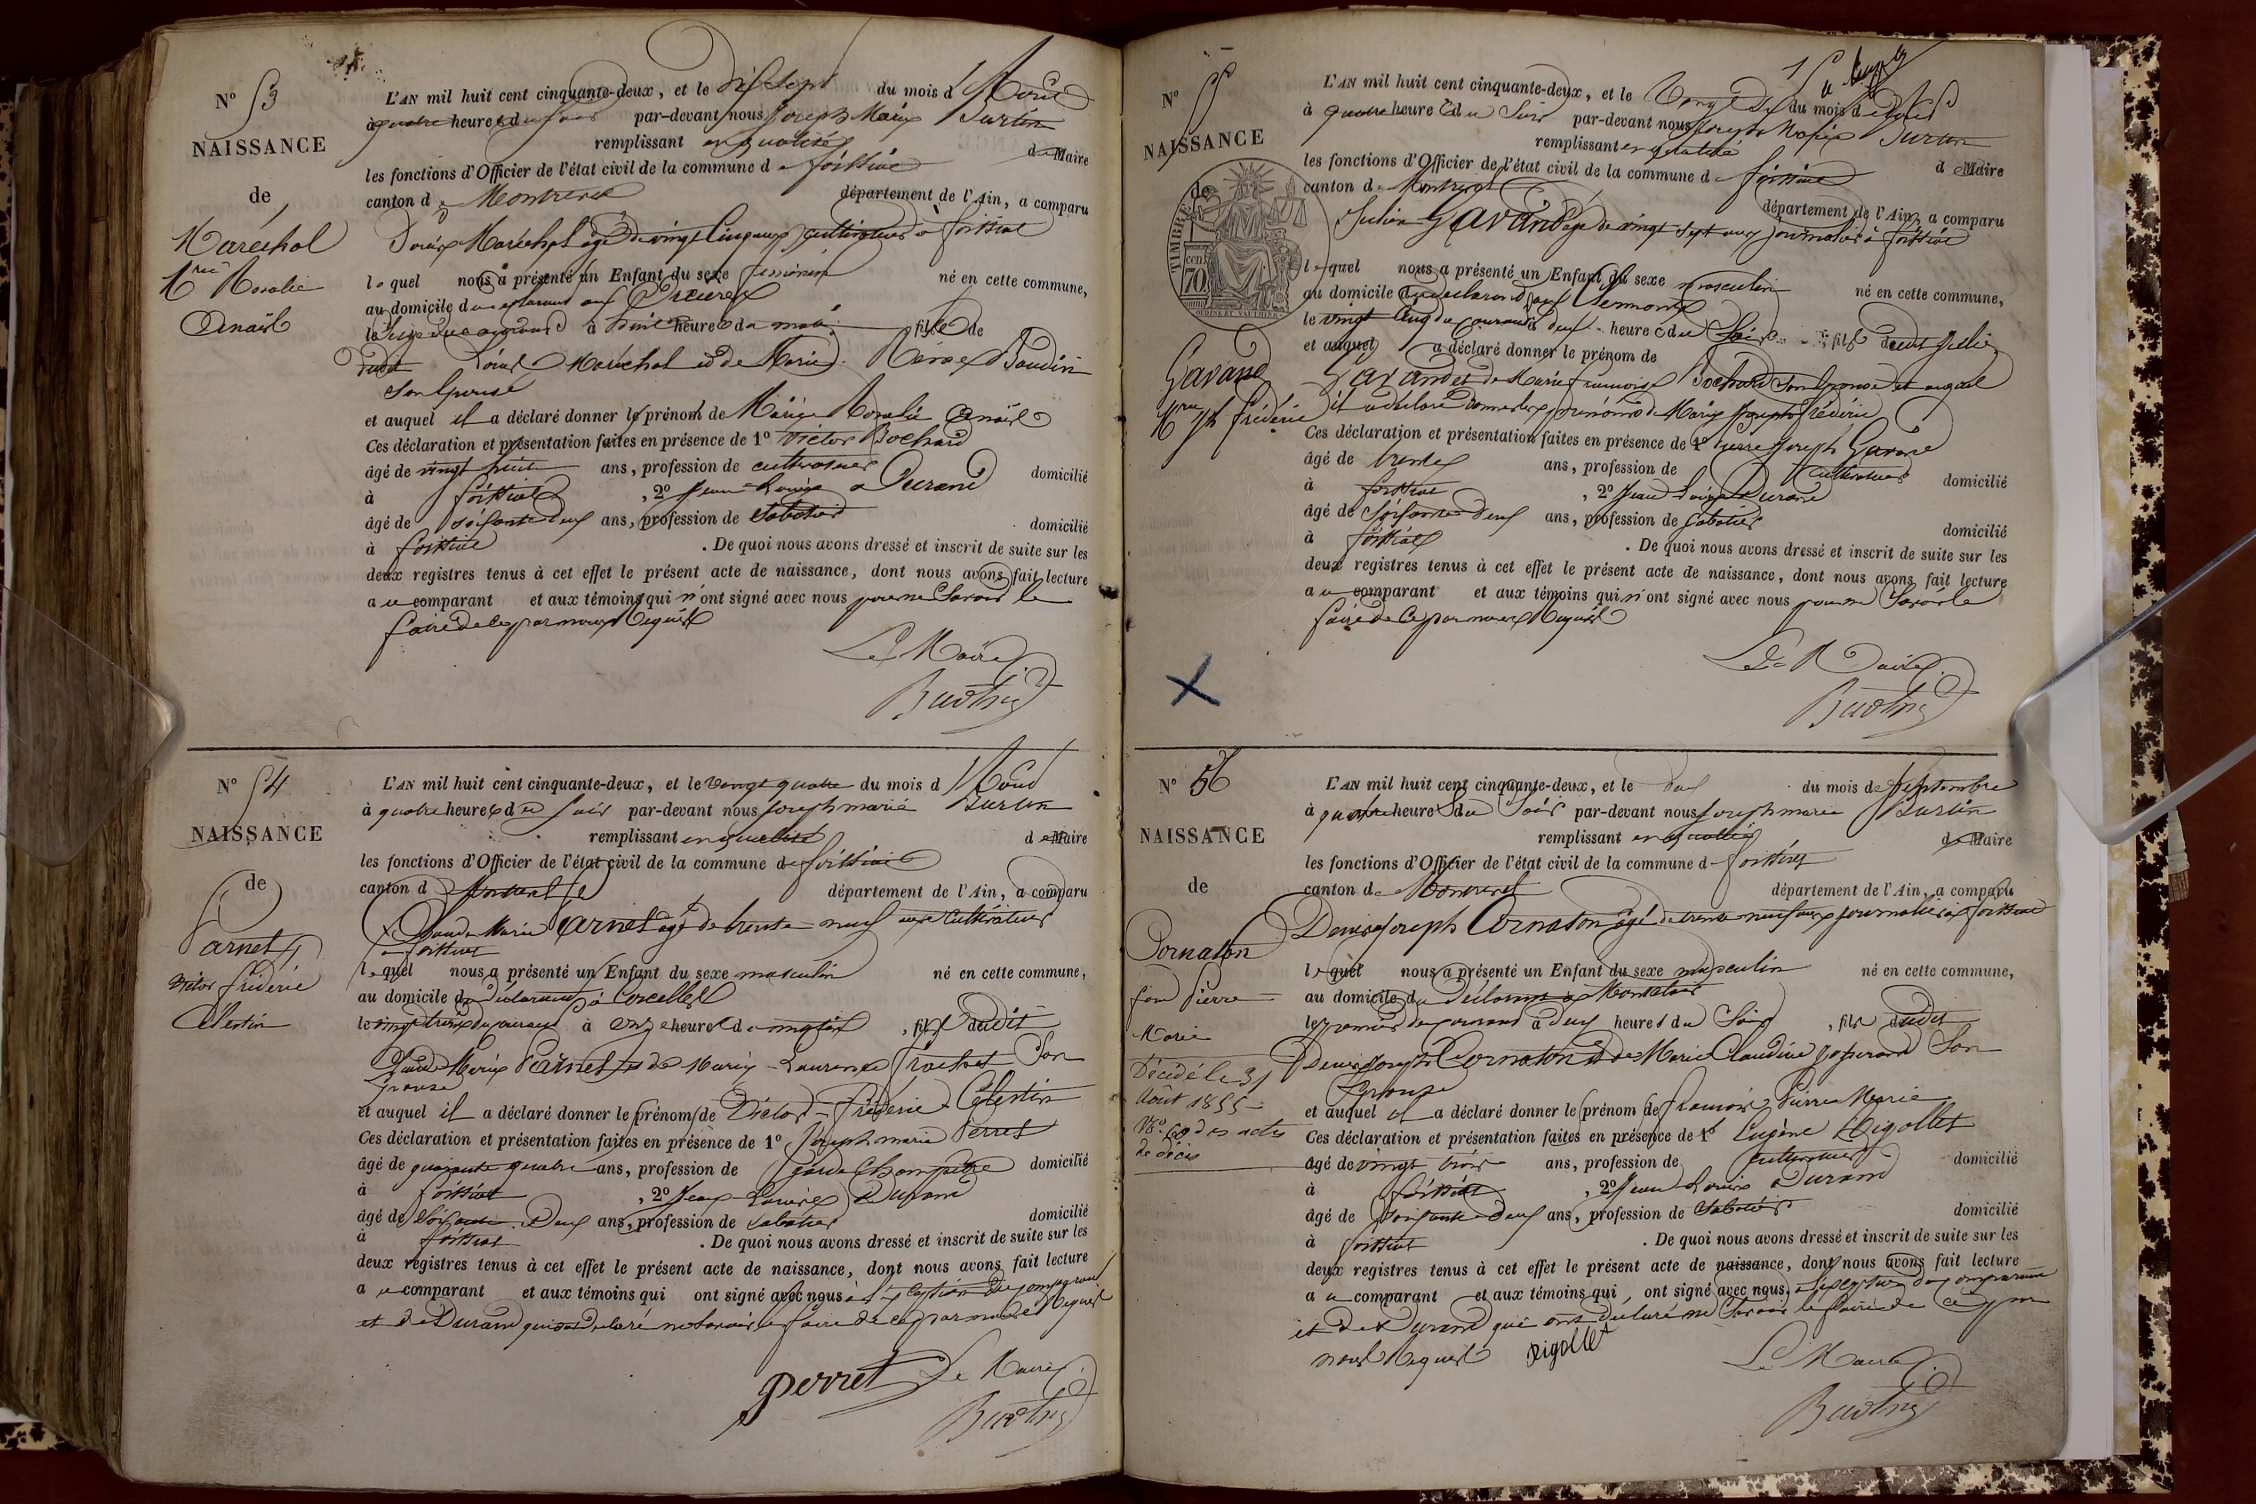 N° 53
NAISSANCE
de
Maréchal
Mrie Rosalie
Anaïs
L'AN mil huit cent cinquante-deux, et le dix sept du mois d'Août
à quatre heures du soir par-devant nous Joseph Marie Burtin
remplissant en qualité de Maire
les fonctions d'Officier de l'état civil de la commune de foissiat
canton de Montrevel département de l'Ain, a comparu
Maréchal âgé de vingt cinq ans cultivateur à foissiat
lequel nous a présenté un Enfant du sexe féminin né en cette commune,
au domicile du déclarant aux
le du courant à huit heures du matin fille de
dudit Maréchal et de Marie Baudin
Son Epouse
et auquel il a déclaré donner les prénoms de Marie Rosalie Anaïs
Ces déclaration et présentation faites en présence de 1° Victor Bochard
âgé de vingt huit ans, profession de cultivateur domicilié
à foissiat, 2° Jean Louis Durand
âgé de soixante deux ans, profession de Sabotier domicilié
à foissiat. De quoi nous avons dressé et inscrit de suite sur les
deux registres tenus à cet effet le présent acte de naissance, dont nous avons fait lecture
au comparant et aux témoins qui n'ont signé avec nous pour ne Savoir le
faire de ce par nous Requis
Le Maire
Burtin
N° 54
NAISSANCE
de
Varnet
Victor fréderic
Célestin
L'AN mil huit cent cinquante-deux, et le vingt quatre du mois d'Août
à quatre heures du soir par-devant nous Joseph marie Burtin
remplissant en qualité de Maire
les fonctions d'Officier de l'état civil de la commune de foissiat
canton d département de l'Ain, a comparu
Claude Marie Varnet âgé de trente-neuf ans Cultivateur
à foissiat
lequel nous a présenté un Enfant du sexe masculin né en cette commune,
au domicile du déclarant à Corcelles
le vingt trois du courant à onze heures du matin, fils dudit
Claude Marie Varnet et de Marie-Laurence Son
Epouse
et auquel il a déclaré donner les prénoms de Victor-fréderic Célestin
Ces déclaration et présentation faites en présence de 1° Joseph marie Perret
âgé de quarante quatre ans, profession de garde Champêtre domicilié
à foissiat, 2° Jean-Louis Durand
âgé de Soixante Deux ans, profession de sabotier domicilié
à foissiat. De quoi nous avons dressé et inscrit de suite sur les
deux registres tenus à cet effet le présent acte de naissance, dont nous avons fait lecture
au comparant et aux témoins qui ont signé avec nous à l'exception du comparant
et de Durand qui ont déclaré ne Savoir le faire de ce par nous Requis
perret Le Maire
Burtin
N° 55
NAISSANCE
de
TIMBRE
70
cent
OUDINE ET VAUTHIER
Gavand
Mrie Jph fréderic
L'AN mil huit cent cinquante-deux, et le vingt six du mois d'Août
à quatre heures du Soir par-devant nous Joseph Marie Burtin
remplissant en qualité de Maire
les fonctions d'Officier de l'état civil de la commune de foissiat
canton de Montrevel département de l'Ain, a comparu
Julien Gavand âgé de vingt sept ans journalier à foissiat
lequel nous a présenté un Enfant du sexe masculin né en cette commune,
au domicile du déclarant aux
le vingt cinq du courant à deux heures du Soir fils dudit Julien
et auquel a déclaré donner le prénom de
Gavand et de Marie françoise Bochard Son Epouse et auquel
il a déclaré donner les prénoms de Marie Joseph fréderic
Ces déclaration et présentation faites en présence de 1° pierre Joseph Gavand
âgé de trente ans, profession de Cultivateur domicilié
à foissiat, 2° Jean Louis Durand
âgé de Soixante-deux ans, profession de Sabotier domicilié
à foissiat. De quoi nous avons dressé et inscrit de suite sur les
deux registres tenus à cet effet le présent acte de naissance, dont nous avons fait lecture
au comparant et aux témoins qui n'ont signé avec nous pour ne Savoir le
faire de ce par nous Requis
Le Maire
Burtin
N° 56
NAISSANCE
de
Cornaton
fois Pierre
Marie
Décédé le 31
Août 1855
N° 60 des actes
de décès
L'AN mil huit cent cinquante-deux, et le deux du mois de Septembre
à quatre heures du Soir par-devant nous Joseph marie Burtin
remplissant en qualité de Maire
les fonctions d'Officier de l'état civil de la commune de foissiat
canton de Montrevel département de l'Ain, a comparu
Denis Joseph Cornaton âgé de trente-neuf ans journalier à foissiat
lequel nous a présenté un Enfant du sexe masculin né en cette commune,
au domicile du déclarant à
le premier du courant à deux heures du Soir, fils dudit
Denis Joseph Cornaton et de Marie Claudine Son
Epouse
et auquel il a déclaré donner les prénoms de françois Pierre Marie
Ces déclaration et présentation faites en présence de 1° Eugène Rigollet
âgé de vingt trois ans, profession de cultivateur domicilié
à foissiat, 2° Jean Louis Durand
âgé de Soixante-Deux ans, profession de Sabotier domicilié
à foissiat. De quoi nous avons dressé et inscrit de suite sur les
deux registres tenus à cet effet le présent acte de naissance, dont nous avons fait lecture
au comparant et aux témoins qui ont signé avec nous, à l'exception du comparant
et de Durand qui ont déclaré ne Savoir le faire de ce par
nous Requis Rigollet Le Maire
Burtin